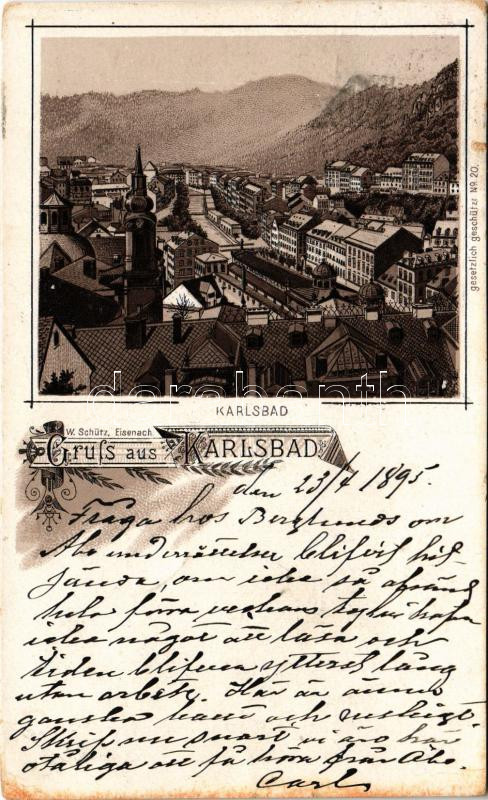 gesetzlich geschützt Nº 20.
KARLSBAD
darabanth
W. Schütz, Eisenach
Gruss aus KARLSBAD
den 23/7 1895.
Fråga hos Berglunds om
Åbo underrättelser blifvit hit
sända, om icke så
hela förra veckans
icke något att läsa och
tiden blifver ytterst lång
utan arbete. Här är ännu
ganska tomt och
Skrif nu snart vi äro här
otåliga att få höra från Åbo.
Carl